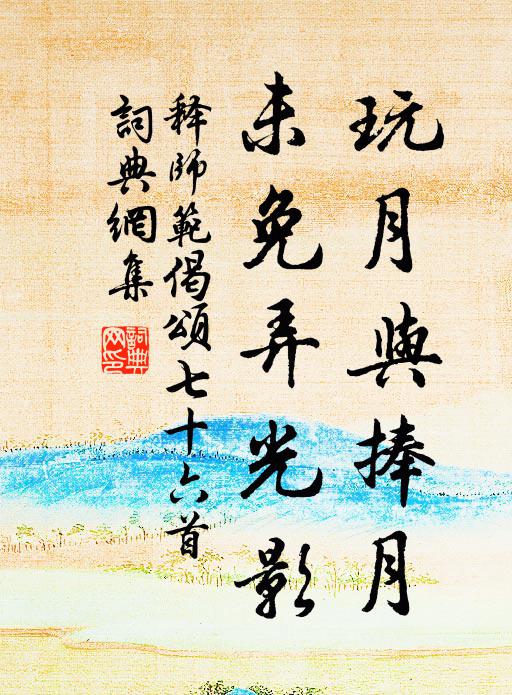 玩月與捧月
未免弄光影
释師範偈頌七十六首
詞典網集
詞典網印